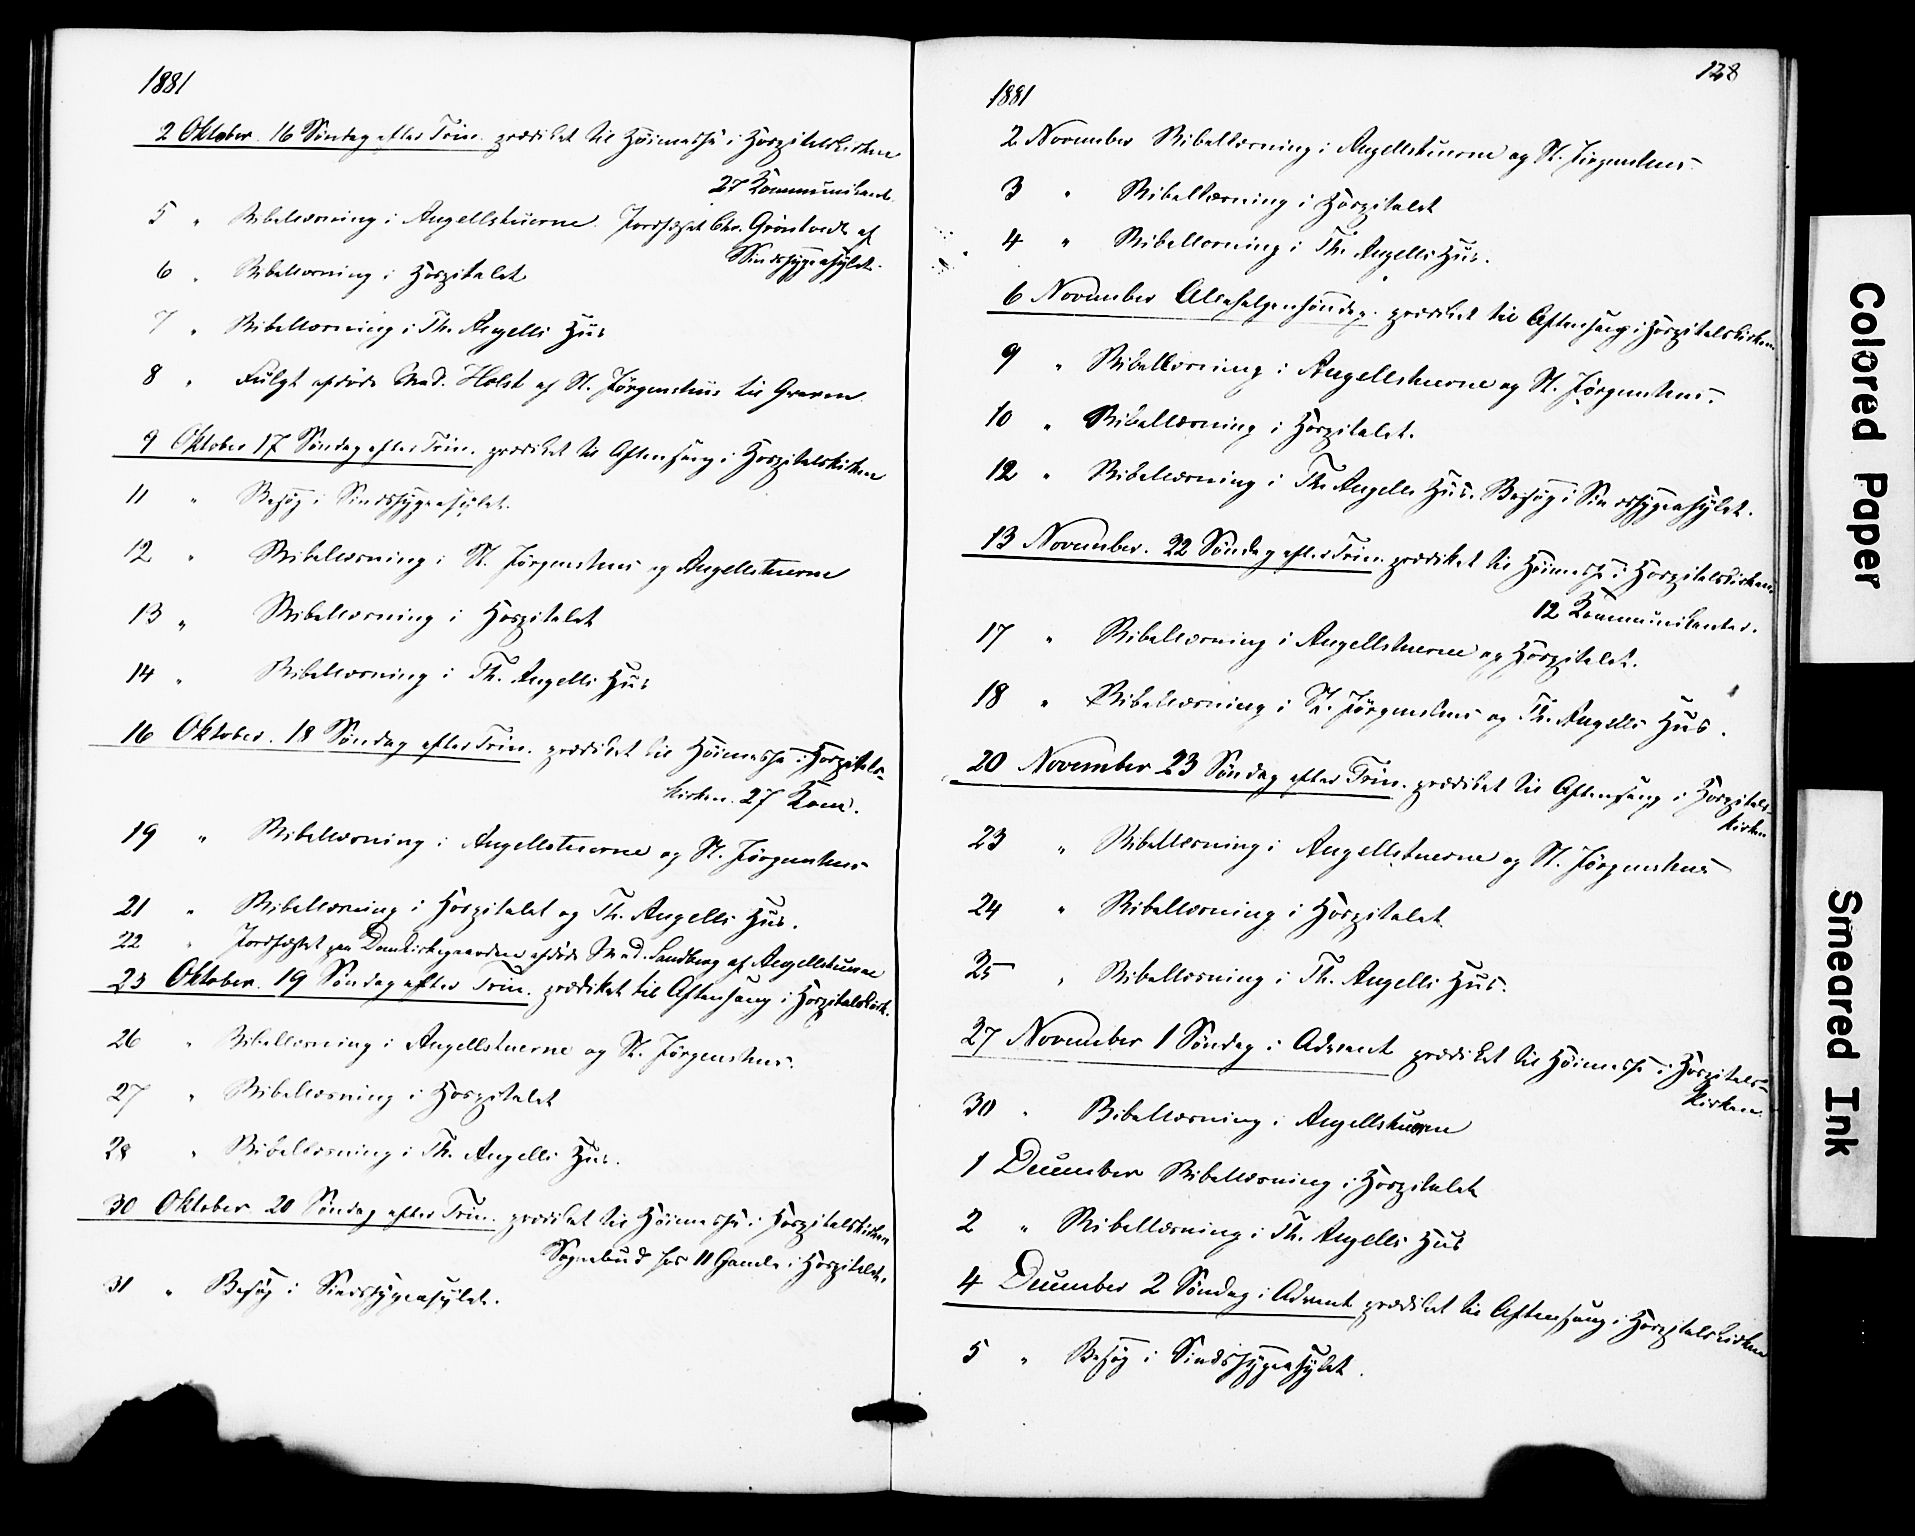 1881
2 Oktober. 16 Søndag efter Trin. prædiket til Høimesse i Hospitalskirken
27 Kommunikant.
5 " Bibellæsning i Angellstuerne. Jordfæstet Chr. Grøntvedt af
Sindssygeasylet.
6 " Bibellæsning i Hospitalet
7 " Bibellæsning i Th. Angells Hus
8 " Fulgt afdøde Mad. Holst af St. Jørgenshus til Graven.
9 Oktober 17 Søndag efter Trin. prædiket til Aftensang i Hospitalskirken
11 " Besøg i Sindssygeasylet.
12 " Bibellæsning i St. Jørgenshus og Angellstuerne
13 " Bibellæsning i Hospitalet
14 " Bibellæsning i Th. Angells Hus
16 Oktober. 18 Søndag efter Trin. prædiket til Høimesse i Hospitals-
kirken. 27 Kom.
19 " Bibellæsning i Angellstuerne og St. Jørgenshus
21 " Bibellæsning i Hospitalet og Th. Angells Hus.
22 " Jordfæstet paa Domkirkegaarden afdøde Mad. Sandberg af Angellstuerne
23 Oktober. 19 Søndag efter Trin. prædiket til Aftensang i Hospitalskirk.
26 " Bibellæsning i Angellstuerne og St. Jørgenshus.
27 " Bibellæsning i Hospitalet
28 " Bibellæsning i Th. Angells Hus.
30 Oktober 20 Søndag efter Trin. prædiket til Høimesse i Hospitalskirken
Sognebud hos 11 Gamle i Hospitalet.
31 " Besøg i Sindssygeasylet.
128
1881
2 November Bibellæsning i Angellstuerne og St. Jørgenshus
3 " Bibellæsning i Hospitalet
4 " Bibellæsning i Th. Angells Hus.
6 November Allehelgensøndag. prædiket til Aftensang i Hospitalskirken
9 " Bibellæsning i Angellstuerne og St. Jørgenshus.
10 " Bibellæsning i Hospitalet.
12 " Bibellæsning i Th. Angells Hus. Besøg i Sindssygeasylet.
13 November. 22 Søndag efter Trin. prædiket til Høimesse i Hospitalskirken
12 Kommunikanter.
17 " Bibellæsning i Angellstuerne og Hospitalet.
18 " Bibellæsning i St. Jørgenshus og Th. Angells Hus.
20 November 23 Søndag efter Trin. prædiket til Aftensang i Hospitals-
kirken
23 " Bibellæsning i Angellstuerne og St. Jørgenshus
24 " Bibellæsning i Hospitalet
25 " Bibellæsning i Th. Angells Hus.
27 November 1 Søndag i Advent prædiket til Høimesse i Hospitals-
kirken.
30 " Bibellæsning i Angellstuerne
1 December Bibellæsning i Hospitalet
2 " Bibellæsning i Th. Angells Hus
4 December 2 Søndag i Advent prædiket til Aftensang i Hospitalskirken
5 " Besøg i Sindssygeasylet.
Colored Paper
Smeared Ink